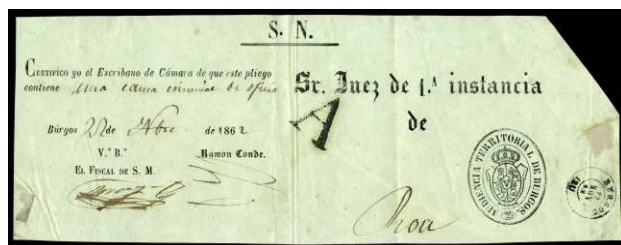 S. N.
CERTIFICO yo el Escribano de Cámara de que este pliego
contiene una causa criminal de oficio
Búrgos 22 de Nbre de 1862
V.º B.º
Ramon Conde.
EL FISCAL DE S. M.
Sr. Juez de 1.ª instancia
de
A
Roa
AUDIENCIA TERRITORIAL DE BURGOS
BURGOS